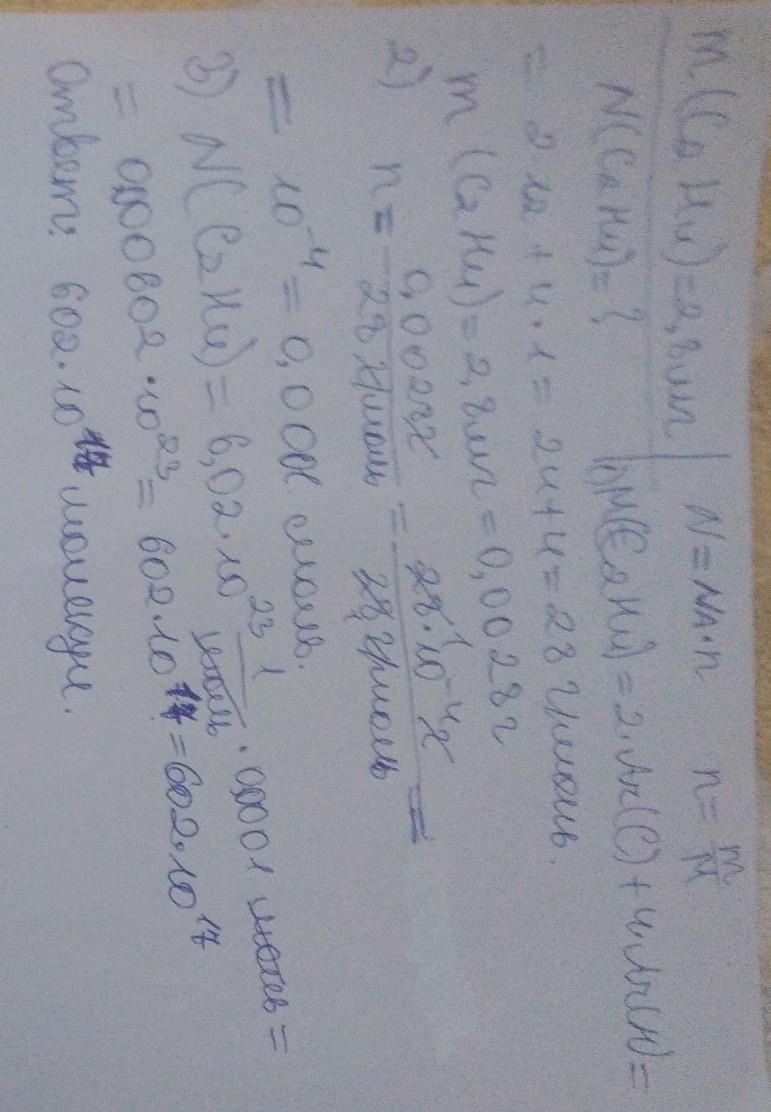 m(C2H4)=2,8мг | N=NA·n n=m/M
N(C2H4)=? | 1)M(C2H4)=2·Ar(C)+4·Ar(H)=
=2·12+4·1=24+4=28 г/моль.
m(C2H4)=2,8мг=0,0028г
2) n=0,0028г/28г/моль=28·10^-4г/28г/моль=
=10^-4=0,0001 моль.
3) N(C2H4)=6,02·10^23 1/моль·0,0001 молев=
=0,000602·10^23=602·10^17=602·10^17
Ответ: 602·10^17 молекул.